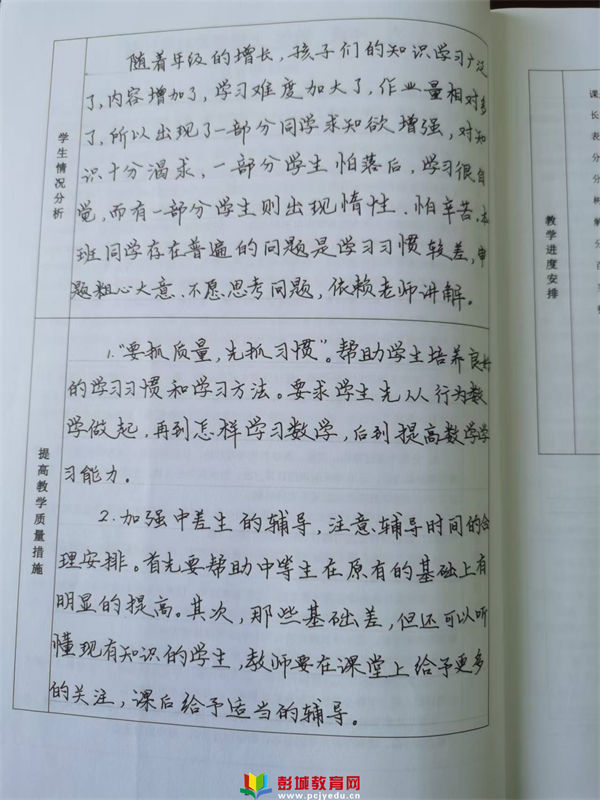 学生情况分析
随着年级的增长，孩子们的知识学习广泛
了，内容增加了，学习难度加大了，作业量相对多
了，所以出现了一部分同学求知欲增强，对知
识十分渴求，一部分学生怕落后，学习很自
觉，而有一部分学生则出现惰性、怕辛苦。本
班同学存在普遍的问题是学习习惯较差，审
题粗心大意、不愿思考问题，依赖老师讲解。
提高教学质量措施
1.“要抓质量，先抓习惯”。帮助学生培养良好
的学习习惯和学习方法。要求学生先从行为数
学做起，再到怎样学习数学，后到提高数学学
习能力。
2.加强中差生的辅导，注意辅导时间的合
理安排。首先要帮助中等生在原有的基础上有
明显的提高。其次，那些基础差，但还可以听
懂现有知识的学生，教师要在课堂上给予更多
的关注，课后给予适当的辅导。
教学进度安排
课
长
表
分
分
树
解
分
百
彭城教育网
www.pcjyedu.cn